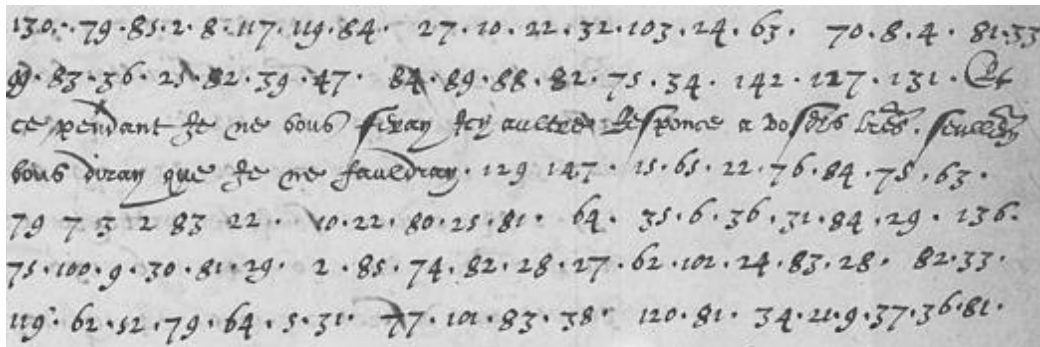 130 · 79 · 85 · 2 · 8 · 117 · 119 · 84 · 27 · 10 · 22 · 32 · 103 · 24 · 63 · 70 · 8 · 4 · 81 · 33
99 · 83 · 36 · 25 · 82 · 39 · 47 · 84 · 89 · 88 · 82 · 75 · 34 · 142 · 127 · 131 · Et
ce pendant Je ne vous feray Icy aultre Responce a vosdtes lres. seullemt
vous diray que Je ne fauldray · 129 147 · 15 · 65 · 22 · 76 · 84 · 75 · 63 ·
79 7 3 2 83 22 · 10 · 22 · 80 · 25 · 81 · 64 · 35 · 6 · 36 · 31 · 84 · 29 · 136 ·
75 · 100 · 9 · 30 · 81 · 29 · 2 · 85 · 74 · 82 · 28 · 27 · 62 · 102 · 24 · 83 · 28 · 82 · 33 ·
119 · 62 · 52 · 79 · 64 · 5 · 31 · 77 · 101 · 83 · 38 · 120 · 81 · 34 · 21 · 9 · 37 · 36 · 81 ·